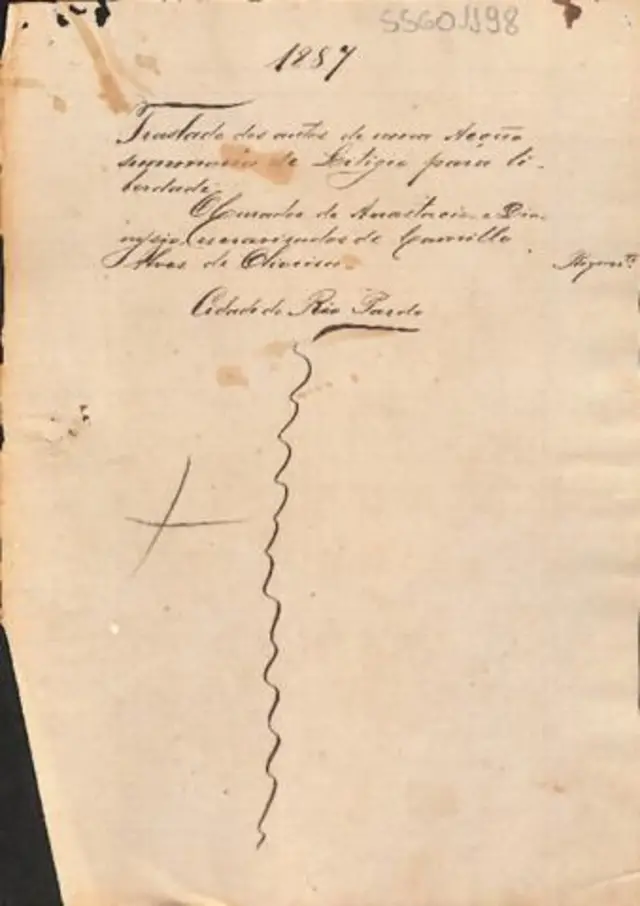 SS601198
1887
Traslado dos autos de uma Acção
summaria de Litigio para li-
berdade.
O Curador de Anastacio e Dio-
nysio, escravisados de Camillo
Alves de Oliveira.
Cidade do Rio Pardo